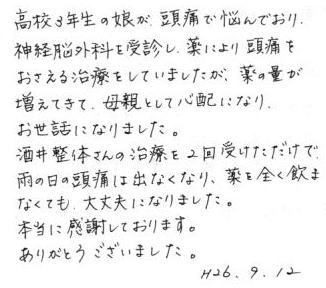 高校3年生の娘が、頭痛で悩んでおり、
神経脳外科を受診し、薬により頭痛を
おさえる治療をしていましたが、薬の量が
増えてきて、母親として心配になり、
お世話になりました。
酒井整体さんの治療を2回受けただけで
雨の日の頭痛は出なくなり、薬を全く飲ま
なくても、大丈夫になりました。
本当に感謝しております。
ありがとうございました。
H26.9.12